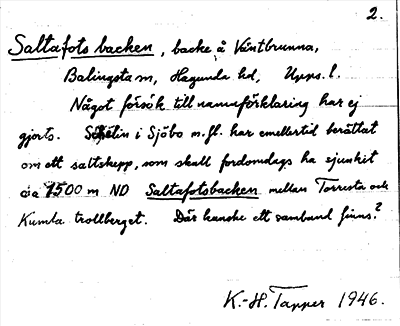 2.
Saltafotsbacken, backe å Västbrunna,
Balingsta sn, Hagunda hd, Upps. l.
Något försök till namnförklaring har ej
gjorts. i Sjöbo m.fl. har emellertid berättat
om ett saltskepp, som skall fordomdags ha sjunkit
c:a 1500 m NO Saltafotsbacken mellan Torresta och
Kumla trollberget. Där kanske ett samband finns?
K.-H. Tapper 1946.